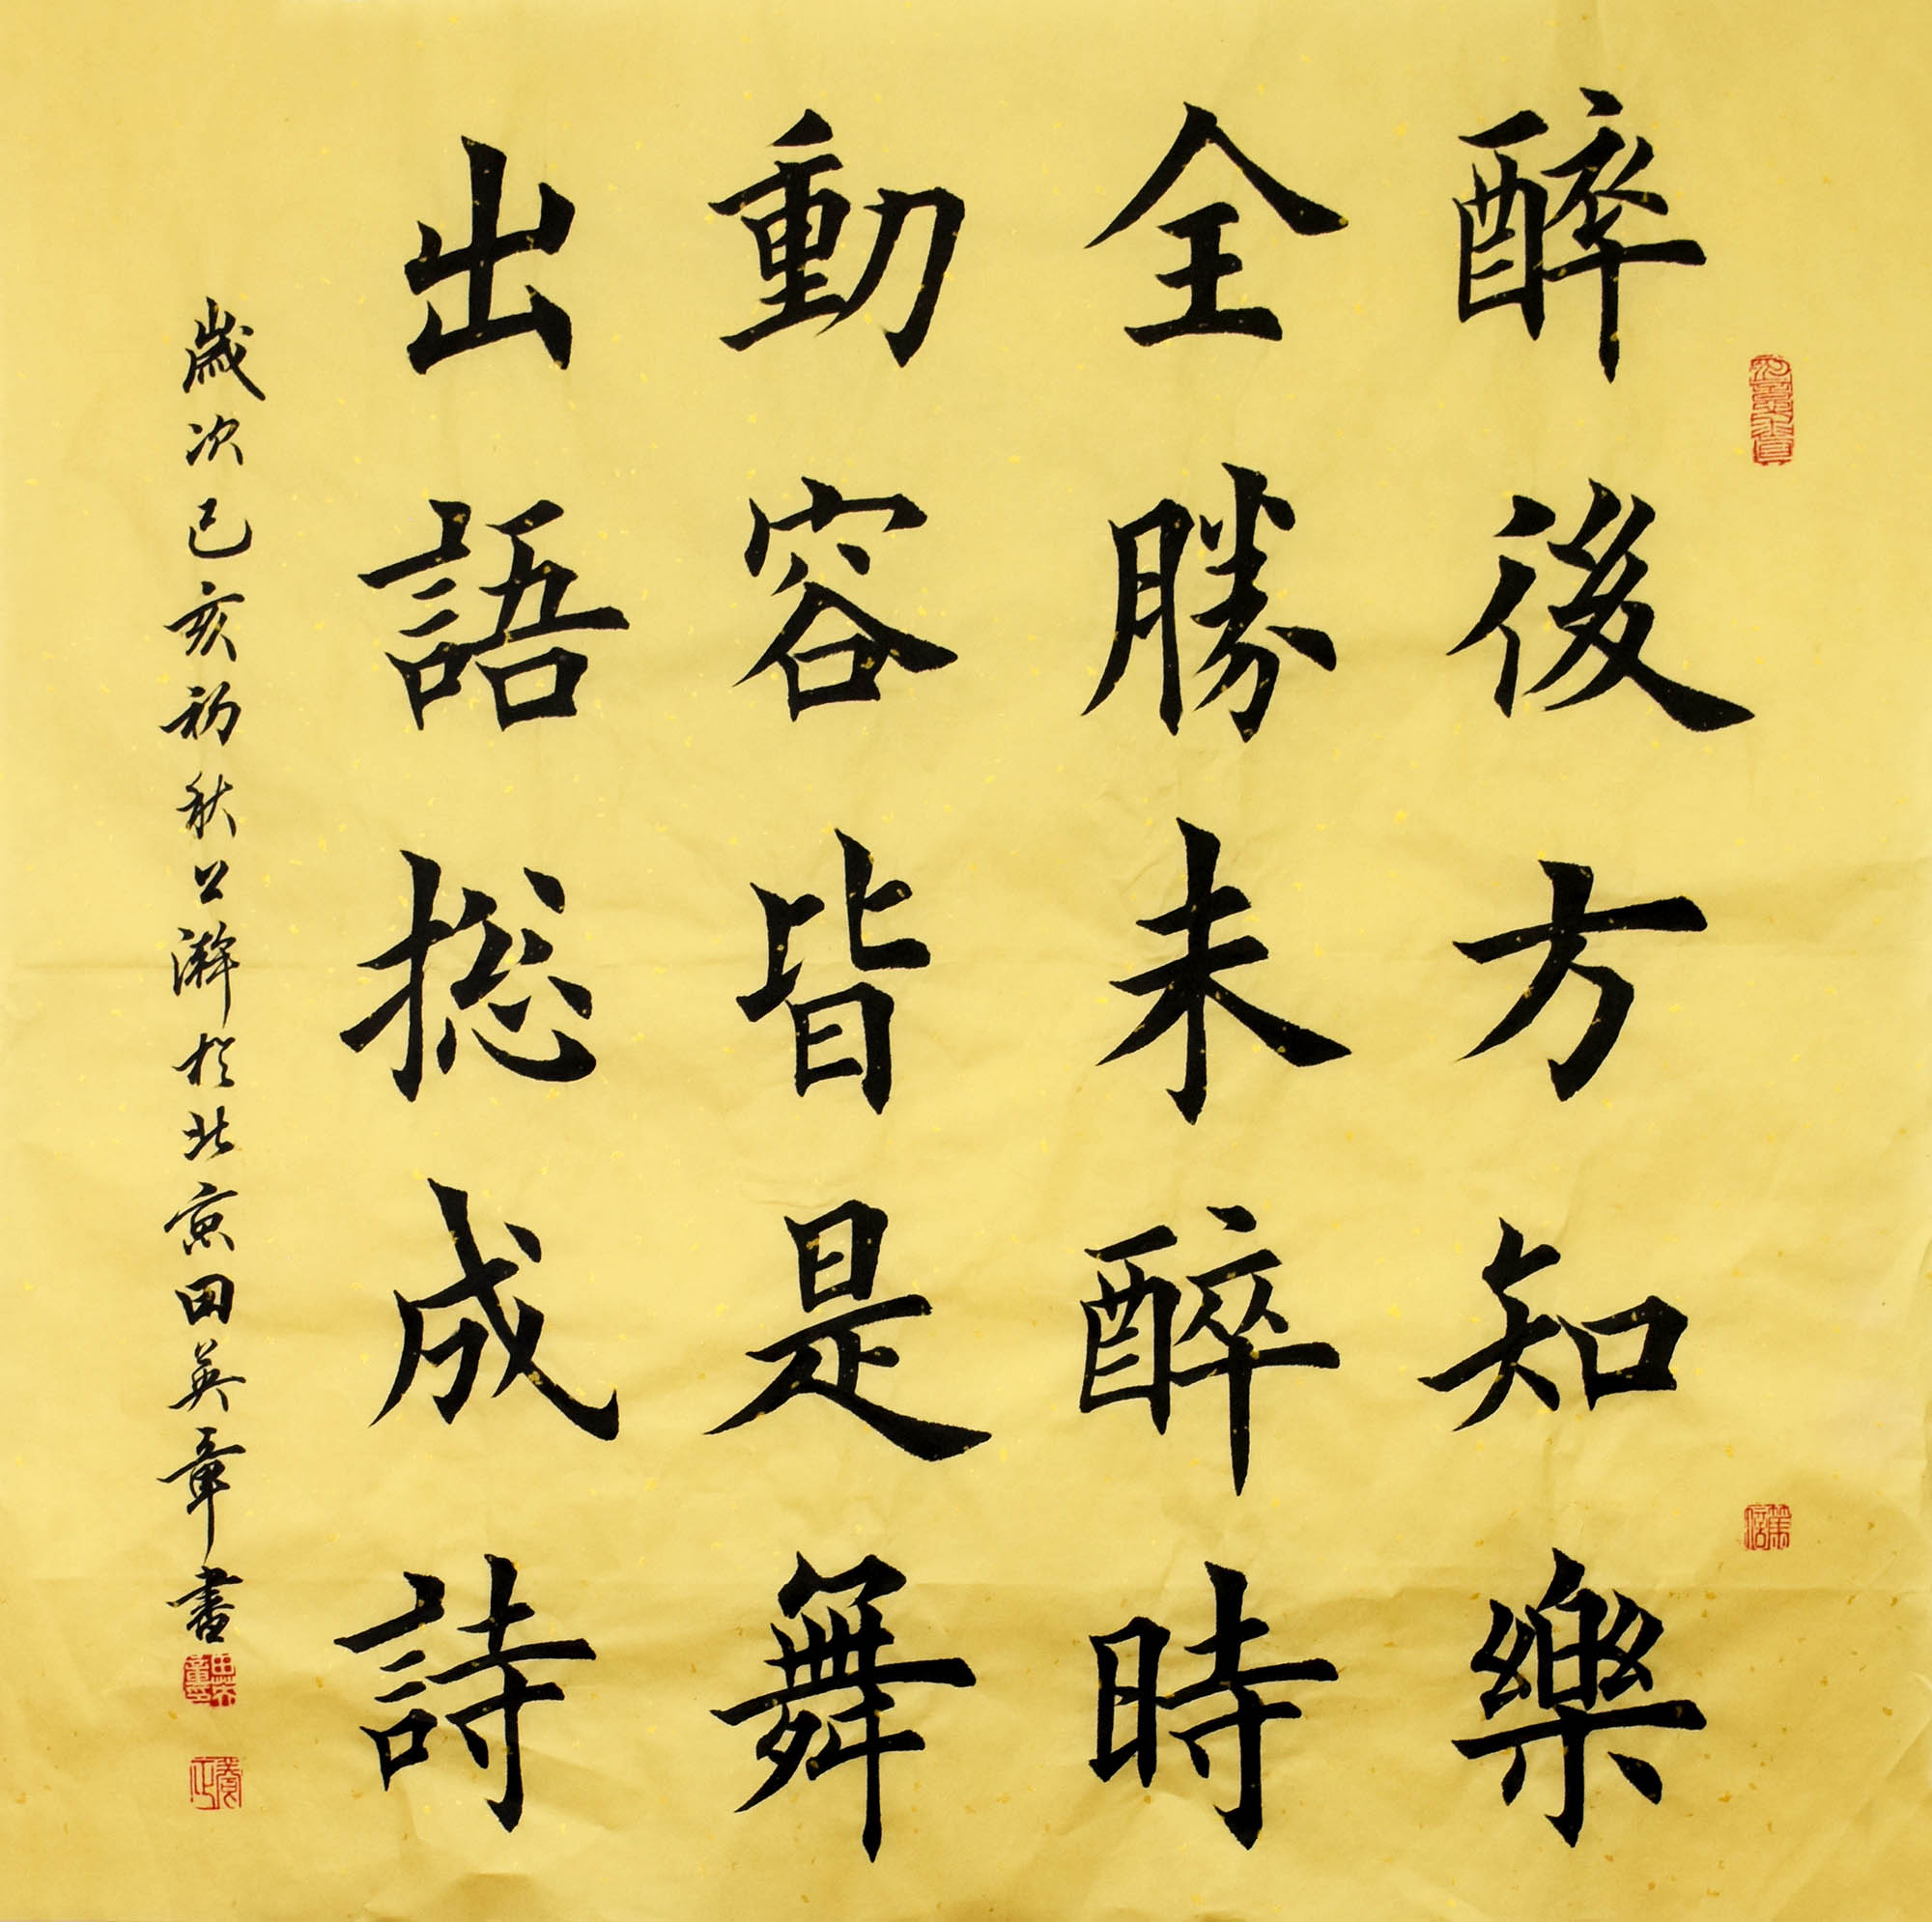 醉後方知樂
全勝未醉時
動容皆是舞
出語揔成詩
歲次己亥初秋公澣於北京田英章書